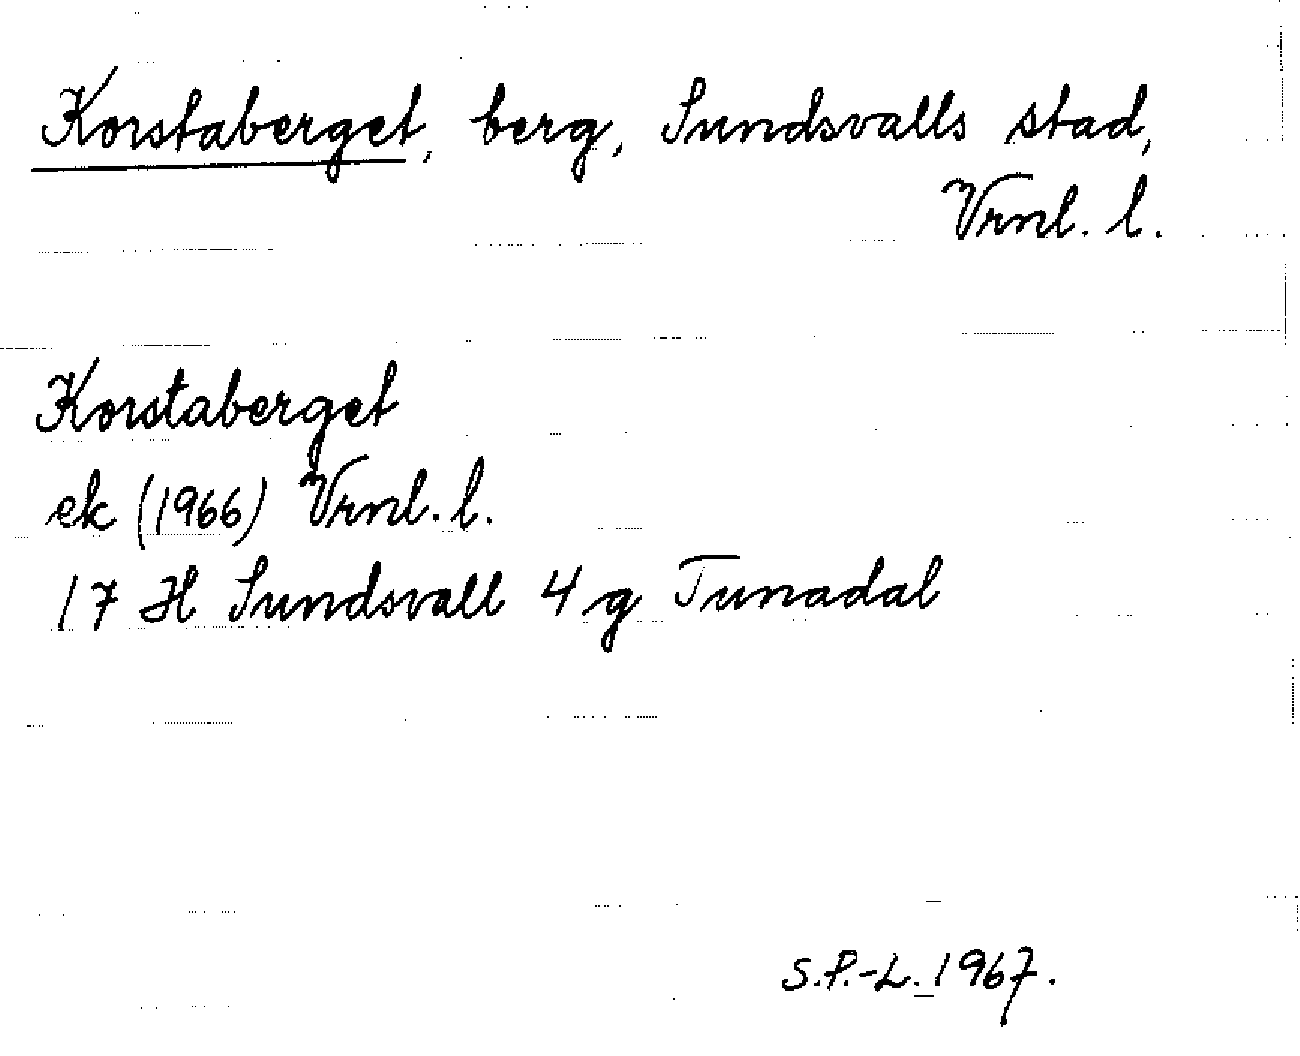 Korstaberget, berg, Sundsvalls stad,
Vrnl. l.
Korstaberget
ek (1966) Vrnl. l.
17 H Sundsvall 4 g Tunadal
S.P.-L. 1967.